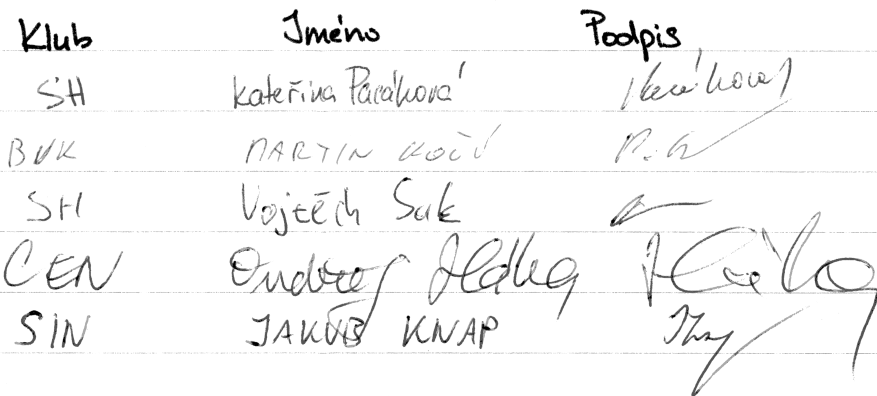 Klub Jméno Podpis
SH Kateřina Pacáková
BVK MARTIN KOČÍ
SH Vojtěch Suk
CEN Ondřej
SIN JAKUB KNAP